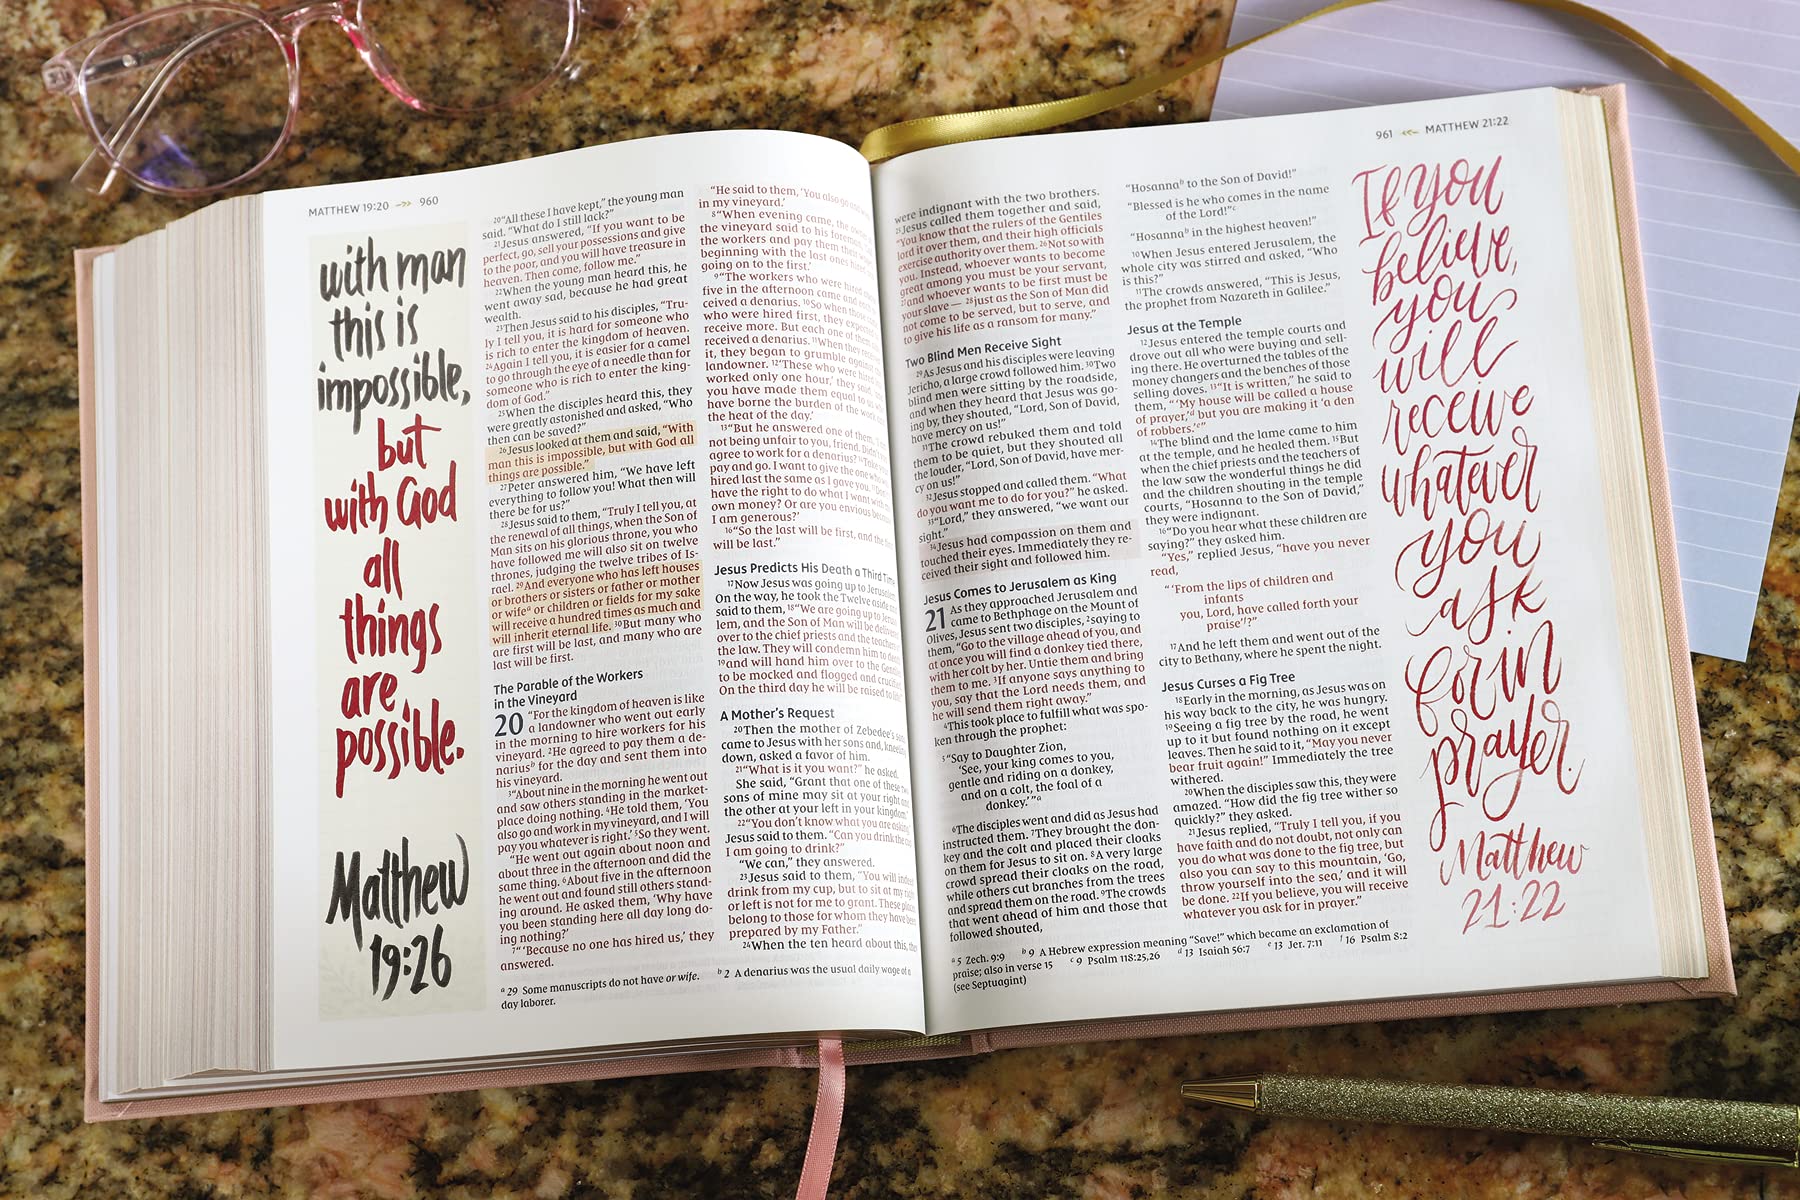 MATTHEW 19:20 960
with man
this is
impossible,
but
with God
all
things
are
possible.
Matthew
19:26
20“All these I have kept,” the young man
said. “What do I still lack?”
21Jesus answered, “If you want to be
perfect, go, sell your possessions and give
to the poor, and you will have treasure in
heaven. Then come, follow me.”
22When the young man heard this, he
went away sad, because he had great
wealth.
23Then Jesus said to his disciples, “Tru-
ly I tell you, it is hard for someone who
is rich to enter the kingdom of heaven.
24Again I tell you, it is easier for a camel
to go through the eye of a needle than for
someone who is rich to enter the king-
dom of God.”
25When the disciples heard this, they
were greatly astonished and asked, “Who
then can be saved?”
26Jesus looked at them and said, “With
man this is impossible, but with God all
things are possible.”
27Peter answered him, “We have left
everything to follow you! What then will
there be for us?”
28Jesus said to them, “Truly I tell you, at
the renewal of all things, when the Son of
Man sits on his glorious throne, you who
have followed me will also sit on twelve
thrones, judging the twelve tribes of Is-
rael. 29And everyone who has left houses
or brothers or sisters or father or mother
or wifea or children or fields for my sake
will receive a hundred times as much and
will inherit eternal life. 30But many who
are first will be last, and many who are
last will be first.
The Parable of the Workers
in the Vineyard
20 “For the kingdom of heaven is like
a landowner who went out early
in the morning to hire workers for his
vineyard. 2He agreed to pay them a de-
nariusb for the day and sent them into
his vineyard.
3“About nine in the morning he went out
and saw others standing in the market-
place doing nothing. 4He told them, ‘You
also go and work in my vineyard, and I will
pay you whatever is right.’ 5So they went.
“He went out again about noon and
about three in the afternoon and did the
same thing. 6About five in the afternoon
he went out and found still others stand-
ing around. He asked them, ‘Why have
you been standing here all day long do-
ing nothing?’
7“‘Because no one has hired us,’ they
answered.
“He said to them, ‘You also go and
in my vineyard.’
8“When evening came, the
the vineyard said to his foreman,
the workers and pay them their
beginning with the last ones hired
going on to the first.’
9“The workers who were hired about
five in the afternoon came and
ceived a denarius. 10So when those
who were hired first, they expected
receive more. But each one of them
received a denarius. 11When they received
it, they began to grumble against
landowner. 12‘These who were hired
worked only one hour,’ they said,
you have made them equal to us who
have borne the burden of the work
the heat of the day.’
13“But he answered one of them, ‘I am
not being unfair to you, friend. Didn’t
agree to work for a denarius? 14Take your
pay and go. I want to give the one who
hired last the same as I gave you. 15Don’t
have the right to do what I want with
own money? Or are you envious because
I am generous?’
16“So the last will be first, and the first
will be last.”
Jesus Predicts His Death a Third Time
17Now Jesus was going up to Jerusalem.
On the way, he took the Twelve aside and
said to them, 18“We are going up to Jerusa-
lem, and the Son of Man will be delivered
over to the chief priests and the teachers
the law. They will condemn him to death
19and will hand him over to the Gentiles
to be mocked and flogged and crucified.
On the third day he will be raised to life!”
A Mother’s Request
20Then the mother of Zebedee’s sons
came to Jesus with her sons and, kneeling
down, asked a favor of him.
21“What is it you want?” he asked.
She said, “Grant that one of these two
sons of mine may sit at your right and
the other at your left in your kingdom.”
22“You don’t know what you are asking,”
Jesus said to them. “Can you drink the cup
I am going to drink?”
“We can,” they answered.
23Jesus said to them, “You will indeed
drink from my cup, but to sit at my right
or left is not for me to grant. These places
belong to those for whom they have been
prepared by my Father.”
24When the ten heard about this, they
a 29 Some manuscripts do not have or wife. b 2 A denarius was the usual daily wage of a
day laborer.
961 MATTHEW 21:22
were indignant with the two brothers.
25Jesus called them together and said,
“You know that the rulers of the Gentiles
lord it over them, and their high officials
exercise authority over them. 26Not so with
you. Instead, whoever wants to become
great among you must be your servant,
27and whoever wants to be first must be
your slave— 28just as the Son of Man did
not come to be served, but to serve, and
to give his life as a ransom for many.”
Two Blind Men Receive Sight
29As Jesus and his disciples were leaving
Jericho, a large crowd followed him. 30Two
blind men were sitting by the roadside,
and when they heard that Jesus was go-
ing by, they shouted, “Lord, Son of David,
have mercy on us!”
31The crowd rebuked them and told
them to be quiet, but they shouted all
the louder, “Lord, Son of David, have mer-
cy on us!”
32Jesus stopped and called them. “What
do you want me to do for you?” he asked.
33“Lord,” they answered, “we want our
sight.”
34Jesus had compassion on them and
touched their eyes. Immediately they re-
ceived their sight and followed him.
Jesus Comes to Jerusalem as King
21 As they approached Jerusalem and
came to Bethphage on the Mount of
Olives, Jesus sent two disciples, 2saying to
them, “Go to the village ahead of you, and
at once you will find a donkey tied there,
with her colt by her. Untie them and bring
them to me. 3If anyone says anything to
you, say that the Lord needs them, and
he will send them right away.”
4This took place to fulfill what was spo-
ken through the prophet:
5“Say to Daughter Zion,
‘See, your king comes to you,
gentle and riding on a donkey,
and on a colt, the foal of a
donkey.’”a
6The disciples went and did as Jesus had
instructed them. 7They brought the don-
key and the colt and placed their cloaks
on them for Jesus to sit on. 8A very large
crowd spread their cloaks on the road,
while others cut branches from the trees
and spread them on the road. 9The crowds
that went ahead of him and those that
followed shouted,
“Hosannab to the Son of David!”
“Blessed is he who comes in the name
of the Lord!”c
“Hosannab in the highest heaven!”
10When Jesus entered Jerusalem, the
whole city was stirred and asked, “Who
is this?”
11The crowds answered, “This is Jesus,
the prophet from Nazareth in Galilee.”
Jesus at the Temple
12Jesus entered the temple courts and
drove out all who were buying and sell-
ing there. He overturned the tables of the
money changers and the benches of those
selling doves. 13“It is written,” he said to
them, “‘My house will be called a house
of prayer,’d but you are making it ‘a den
of robbers.’e”
14The blind and the lame came to him
at the temple, and he healed them. 15But
when the chief priests and the teachers of
the law saw the wonderful things he did
and the children shouting in the temple
courts, “Hosanna to the Son of David,”
they were indignant.
16“Do you hear what these children are
saying?” they asked him.
“Yes,” replied Jesus, “have you never
read,
“‘From the lips of children and
infants
you, Lord, have called forth your
praise’f?”
17And he left them and went out of the
city to Bethany, where he spent the night.
Jesus Curses a Fig Tree
18Early in the morning, as Jesus was on
his way back to the city, he was hungry.
19Seeing a fig tree by the road, he went
up to it but found nothing on it except
leaves. Then he said to it, “May you never
bear fruit again!” Immediately the tree
withered.
20When the disciples saw this, they were
amazed. “How did the fig tree wither so
quickly?” they asked.
21Jesus replied, “Truly I tell you, if you
have faith and do not doubt, not only can
you do what was done to the fig tree, but
also you can say to this mountain, ‘Go,
throw yourself into the sea,’ and it will
be done. 22If you believe, you will receive
whatever you ask for in prayer.”
a 5 Zech. 9:9 b 9 A Hebrew expression meaning “Save!” which became an exclamation of
praise; also in verse 15 c 9 Psalm 118:25,26 d 13 Isaiah 56:7 e 13 Jer. 7:11 f 16 Psalm 8:2
(see Septuagint)
If you
believe,
you
will
receive
whatever
you
ask
for in
prayer.
Matthew
21:22